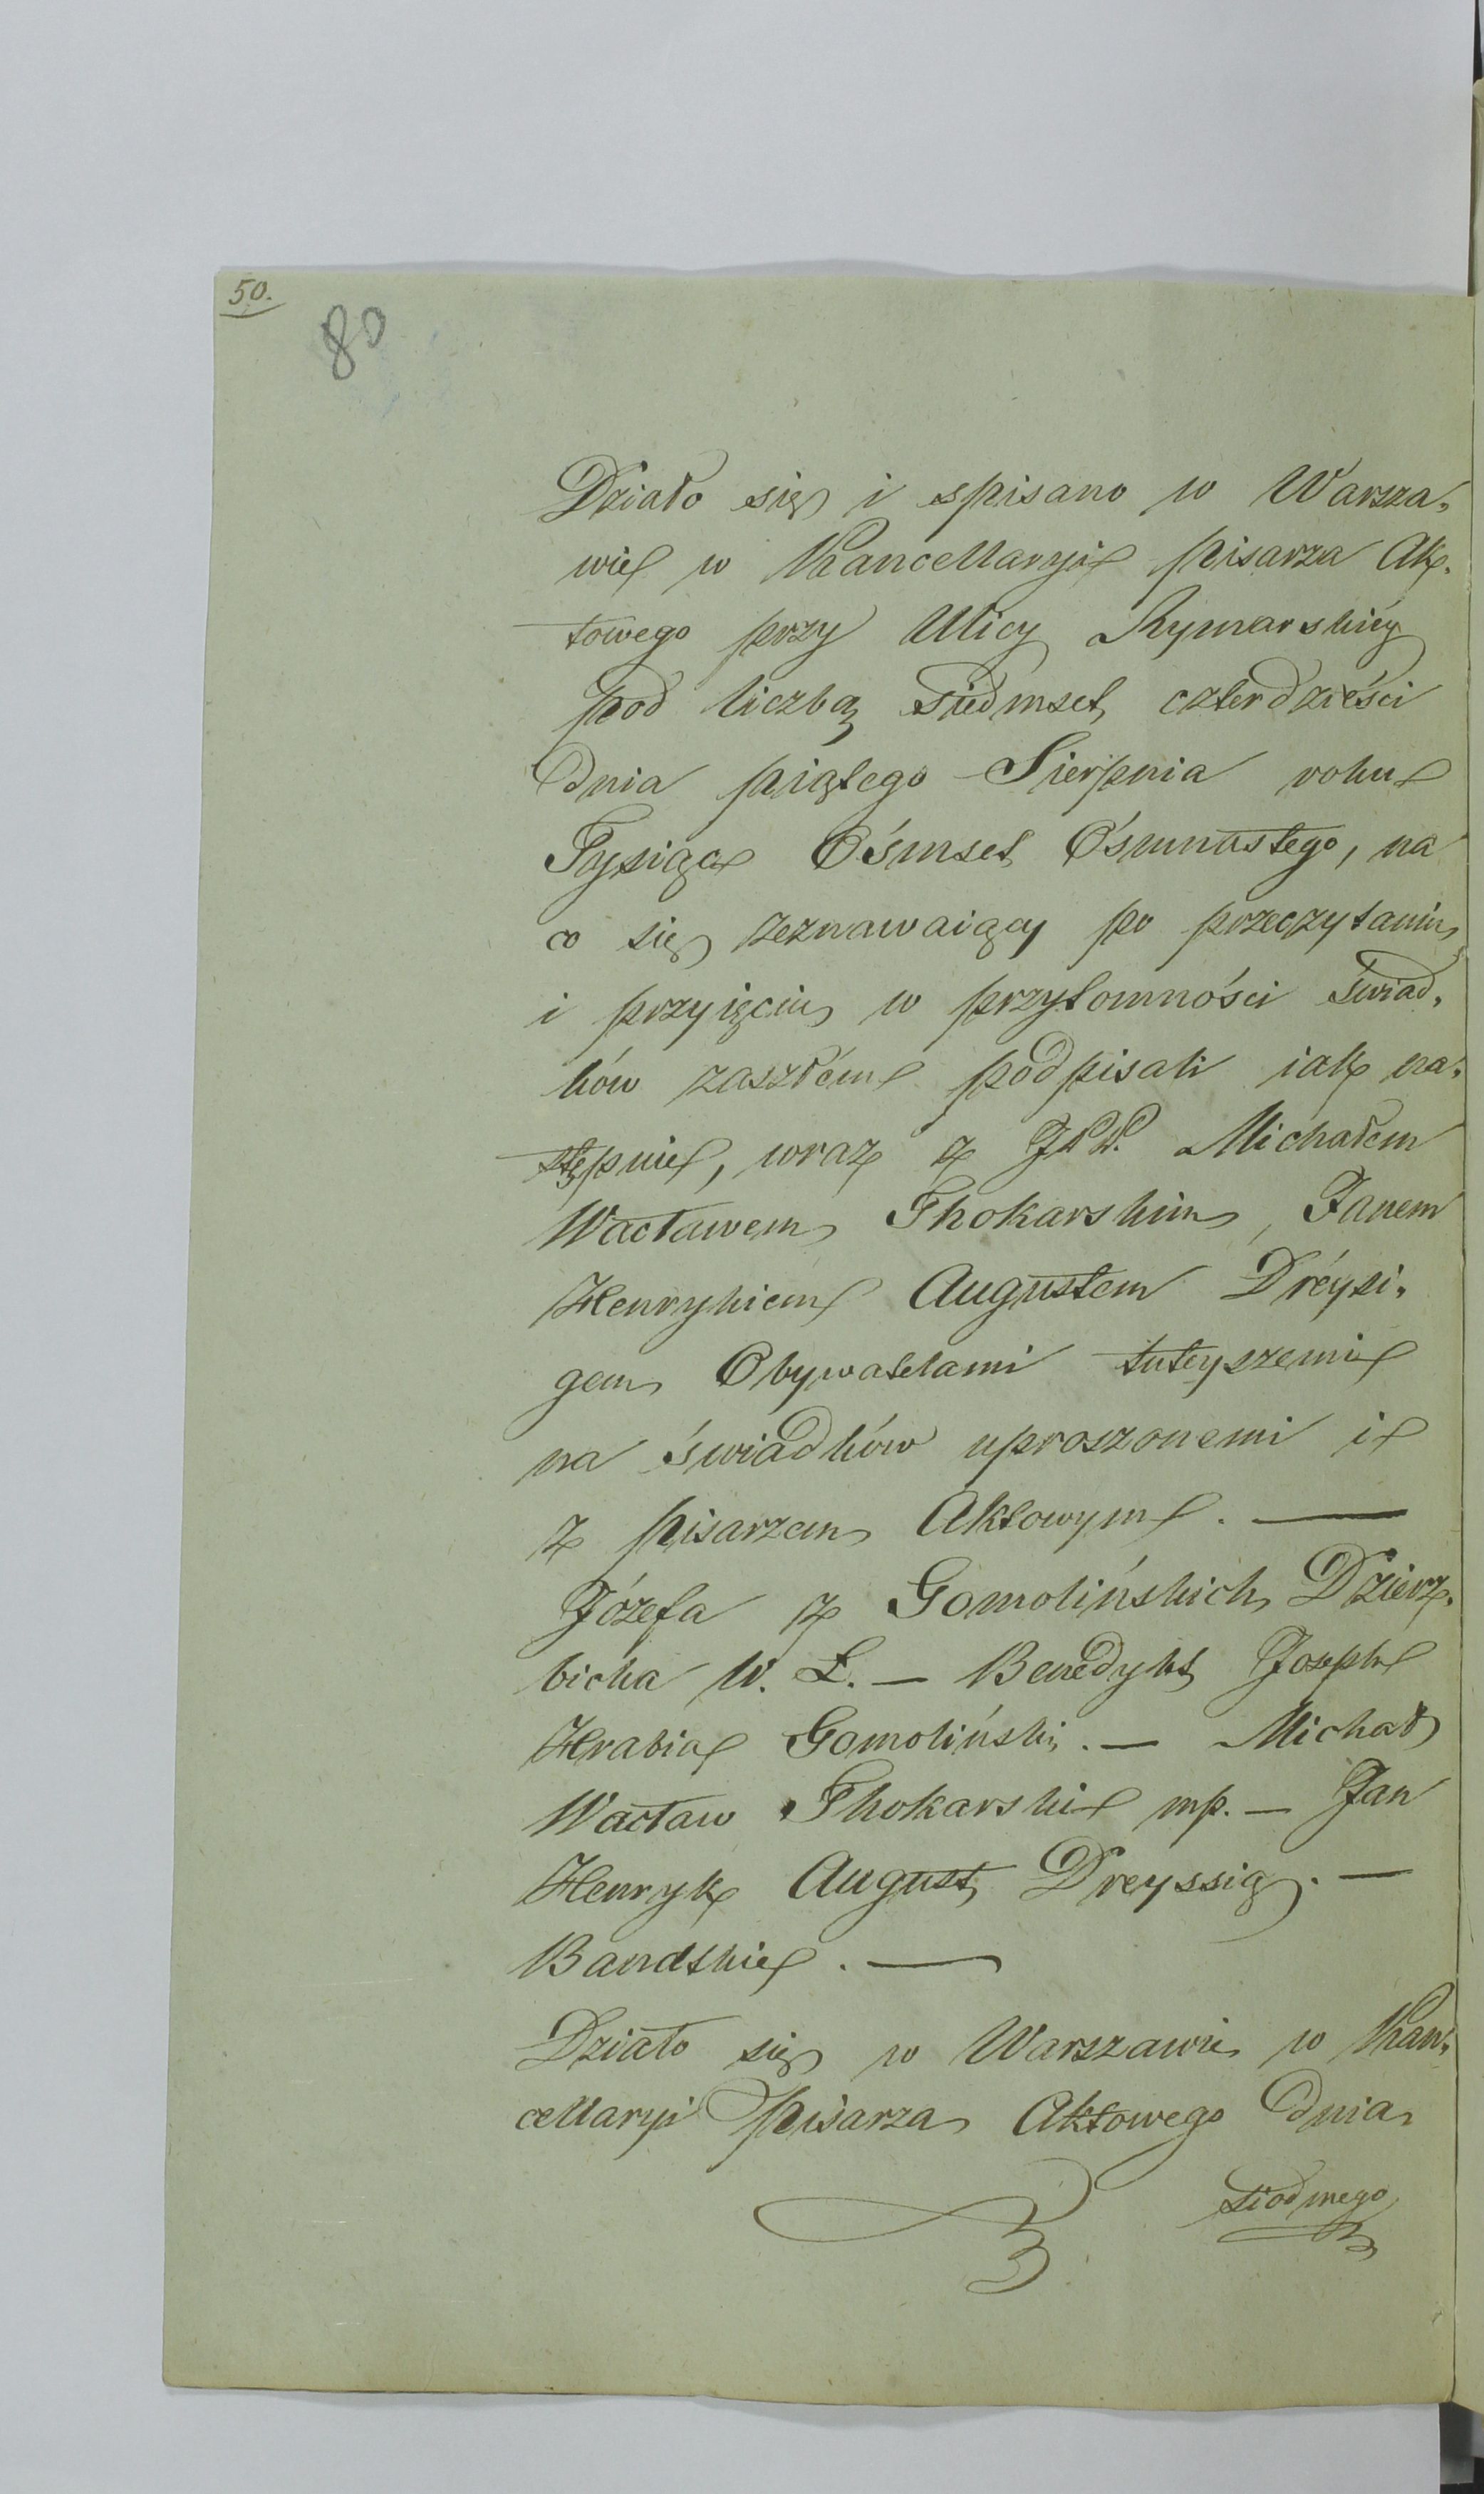 50.
80
Działo się i spisano w Warsza,
wie w Kancellaryi pisarza Ak,
towego przy Ulicy Rymarskiéy
pod liczbą siedmset czterdzieści
dnia piątego Sierpnia roku
Tysiąc Ośmset Ośmnastego, na
co się zeznawaiący po przeczytaniu
i przyięciu w przytomności świad,
ków zaszłém podpisali iak na,
stępuie, wraz z JPP. Michałem
Wacławem Thokarskim, Janem
Henrykiem Augustem Dréysi,
gem Obywatelami tuteyszemi
na świadków uproszonemi i
z pisarzem Aktowym. —
Józefa z Gomolińskich Dzierz,
bicka W. Ł. — Benedykt Joseph
Hrabia Gomoliński. — Michał
Wacław Thokarski mp. — Jan
Henryk August Dreyssig. —
Bandtkie. —
Działo się w Warszawie w Kan,
cellaryi Pisarza Aktowego dnia
siodmego